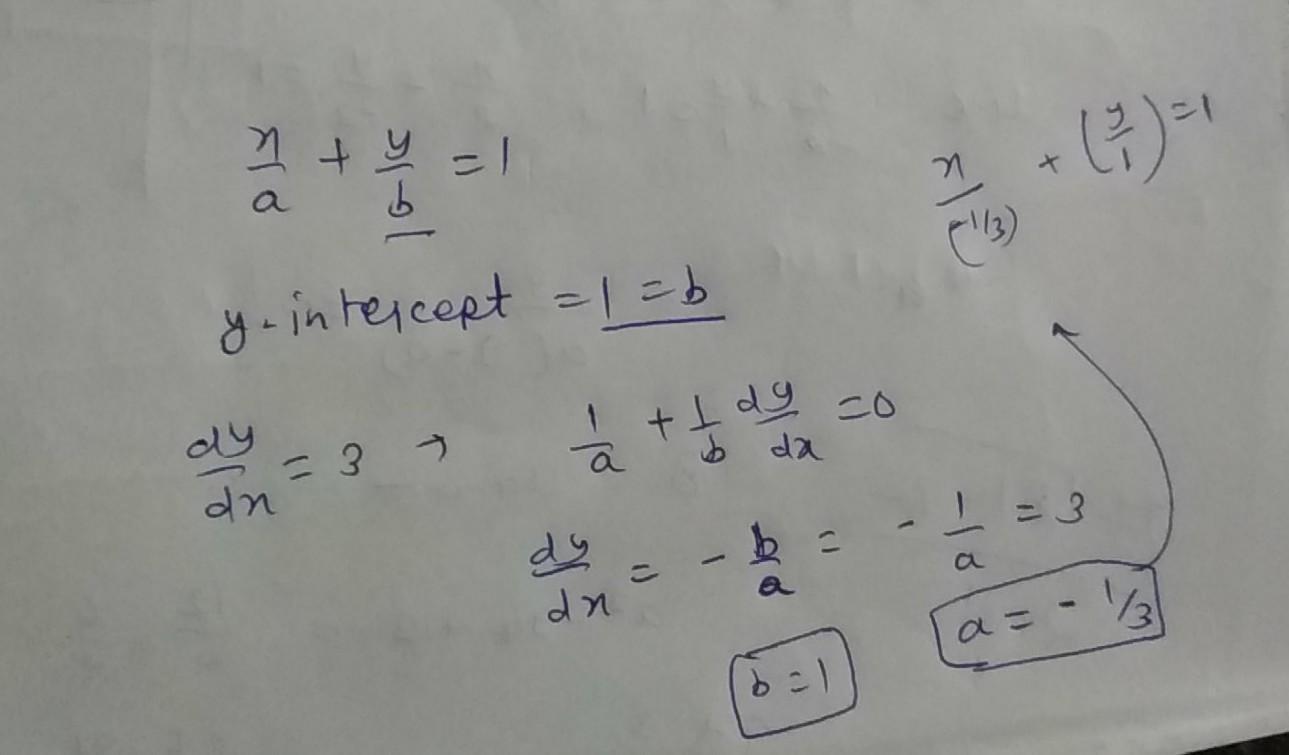 x/a + y/b = 1
x/(-1/3) + (y/1) = 1
y-intercept = 1 = b
dy/dx = 3 → 1/a + 1/b dy/dx = 0
dy/dx = - b/a = - 1/a = 3
b = 1
a = - 1/3